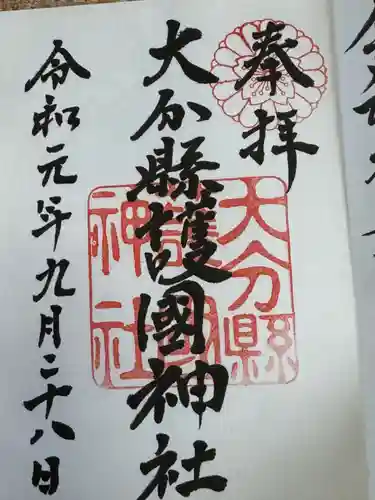 奉拝
大分縣護國神社
令和元年九月二十八日
大分縣
護國
神社